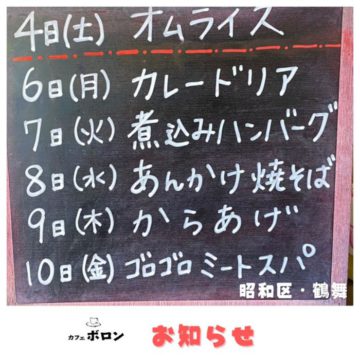 4日(土) オムライス
6日(月) カレードリア
7日(火) 煮込みハンバーグ
8日(水) あんかけ焼そば
9日(木) からあげ
10日(金) ゴロゴロミートスパ
昭和区・鶴舞
カフェ ボロン お知らせ